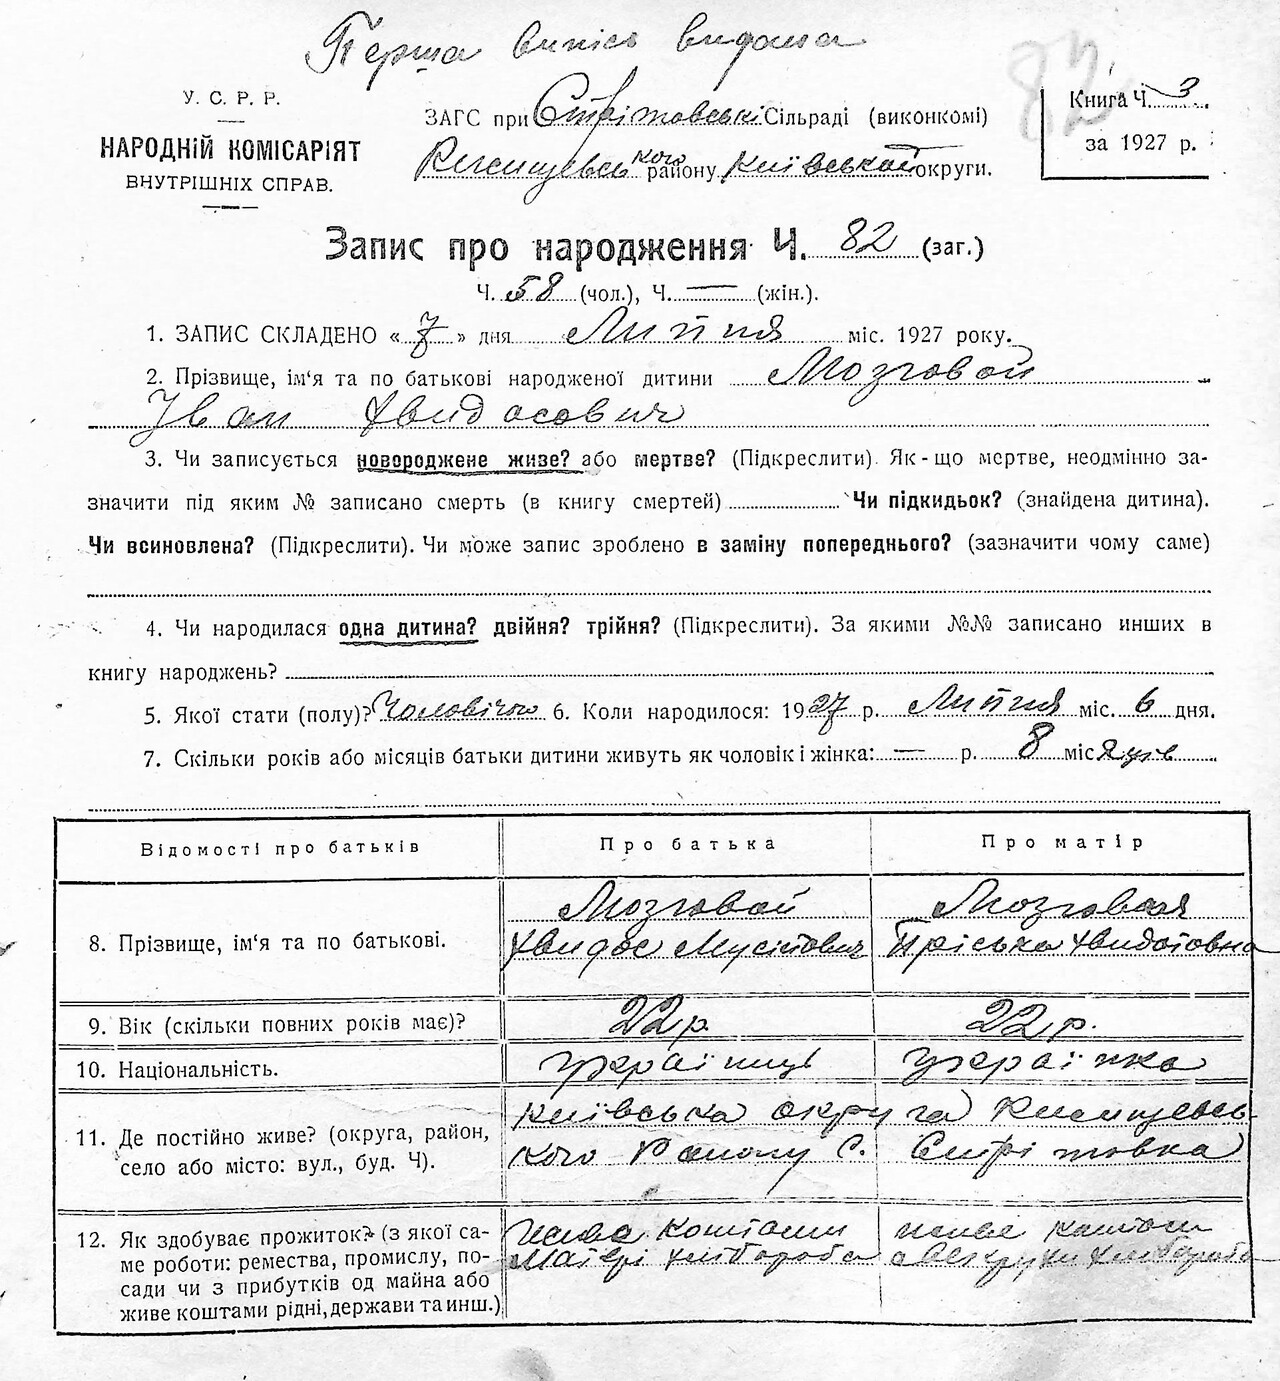 Перша випись видана
82
У. С. Р. Р.
НАРОДНІЙ КОМІСАРІЯТ
ВНУТРІШНІХ СПРАВ.
ЗАГС при Стрітовські Сільраді (виконкомі)
Кагарлицького району Київської округи.
Книга Ч. 3
за 1927 р.
Запис про народження Ч. 82 (заг.)
Ч. 58 (чол.), Ч. — (жін.).
1. ЗАПИС СКЛАДЕНО «7» дня Липня міс. 1927 року.
2. Прізвище, ім'я та по батькові народженої дитини Мозговой
Іван Хвидосович
3. Чи записується новороджене живе? або мертве? (Підкреслити). Як-що мертве, неодмінно за-
значити під яким № записано смерть (в книгу смертей) Чи підкидьок? (знайдена дитина).
Чи всиновлена? (Підкреслити). Чи може запис зроблено в заміну попереднього? (зазначити чому саме)
4. Чи народилася одна дитина? двійня? трійня? (Підкреслити). За якими №№ записано инших в
книгу народжень?
5. Якої стати (полу)? Чоловічого 6. Коли народилося: 1927 р. Липня міс. 6 дня.
7. Скільки років або місяців батьки дитини живуть як чоловік і жінка: — р. 8 місяців
Відомості про батьків Про батька Про матір
8. Прізвище, ім'я та по батькові.
Мозговой
Хвидос Мусійович
Мозговая
Пріська Хвидотовна
9. Вік (скільки повних років має)? 22 р. 22 р.
10. Національність. українць українка
11. Де постійно живе? (округа, район,
село або місто: вул., буд. Ч).
Київська округа
кого Району С. Стрітовка
12. Як здобуває прожиток? (з якої са-
ме роботи: ремества, промислу, по-
сади чи з прибутків од майна або
живе коштами рідні, держави та инш.)
живе коштами
Матері хлібороба
живе коштам
хлібороба